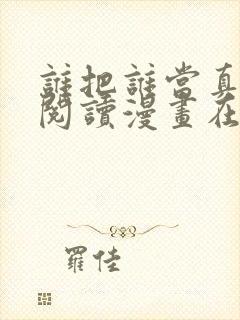 誰把誰當真
閱讀漫畫在
羅佳